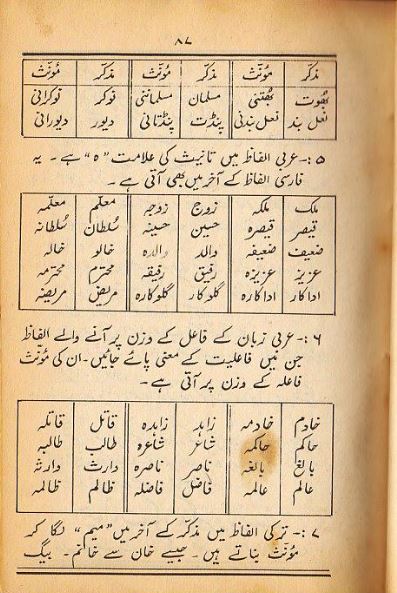 ۸۷
مذکر مؤنث مذکر مؤنث مذکر مؤنث
بھوت بھتنی مسلمان مسلماننی نوکر نوکرانی
نعل بند نعل بندنی پنڈت پنڈتانی دیور دیورانی
۵:- عربی الفاظ میں تانیث کی علامت "ہ" ہے۔ یہ
فارسی الفاظ کے آخر میں بھی آتی ہے۔
ملک ملکہ زوج زوجہ معلم معلمہ
قیصر قیصرہ حسین حسینہ سُلطان سُلطانہ
ضعیف ضعیفہ والد والدہ خالو خالہ
عزیز عزیزہ رفیق رفیقہ محترم محترمہ
اداکار اداکارہ گلوکار گلوکارہ مریض مریضہ
۶:- عربی زبان کے فاعل کے وزن پر آنے والے الفاظ
جن میں فاعلیت کے معنی پائے جائیں۔ ان کی مؤنث
فاعلہ کے وزن پر آتی ہے۔
خادم خادمہ زاہد زاہدہ قاتل قاتلہ
حاکم حاکمہ شاعر شاعرہ طالب طالبہ
بالغ بالغہ ناصر ناصرہ وارث وارثہ
عالم عالمہ فاضل فاضلہ ظالم ظالمہ
۷:- ترکی الفاظ میں مذکر کے آخر میں "میم" لگا کر
مؤنث بناتے ہیں۔ جیسے خان سے خانم۔ بیگ